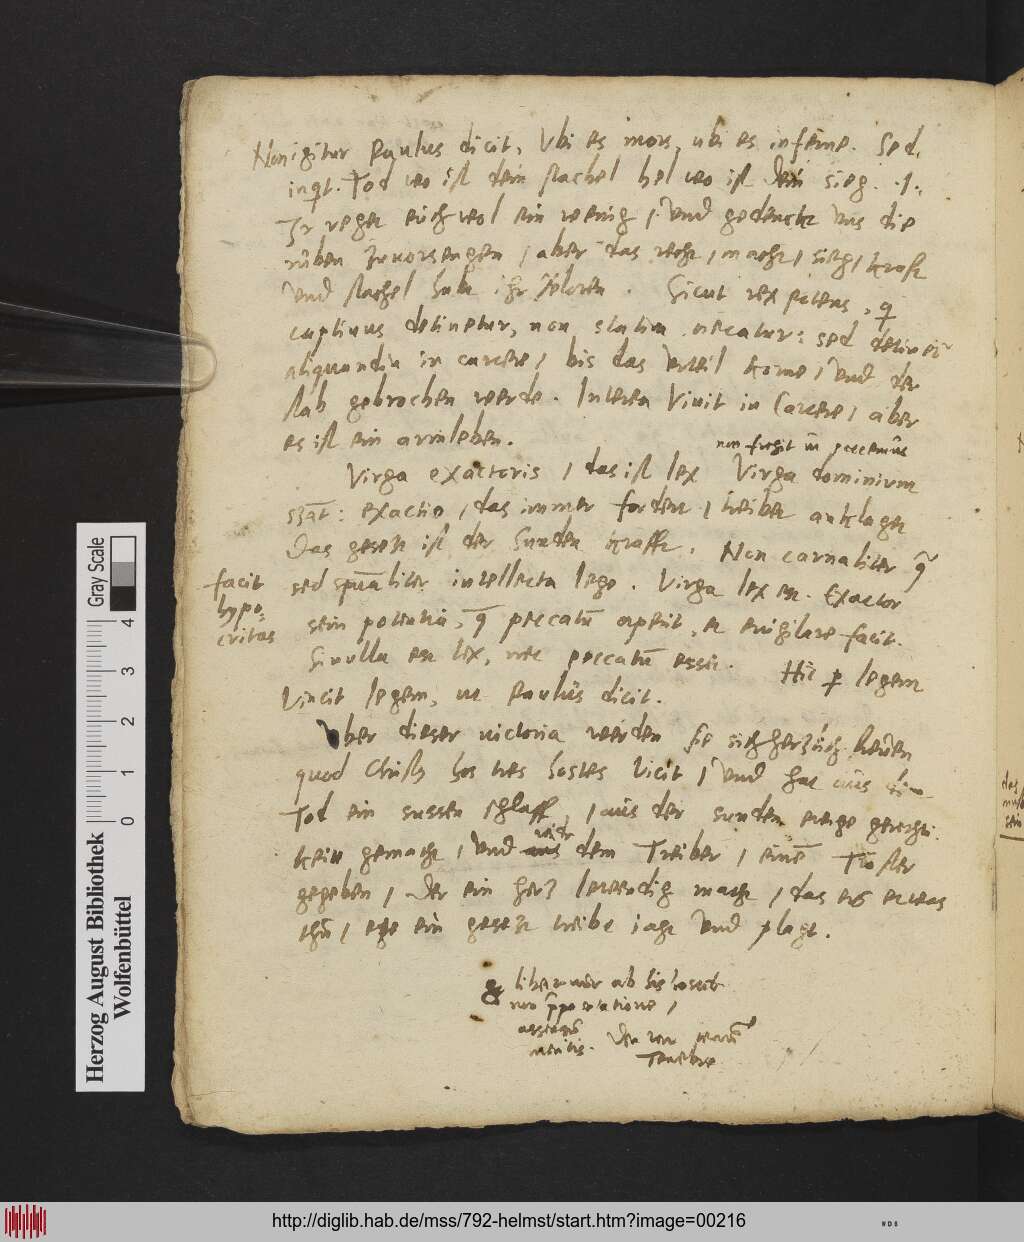 Non igitur Paulus dicit, Vbi es mors, ubi es inferne. Sed,
inqt. Tod wo ist dein stachel hel wo ist dein sieg. .1.
Ir reget euch wol ein wenig / Vnd gedenckt vns die
ruben zuuorsengen / aber das recht / macht / sieg / krafft
Vnd stachel habt ihr verloren. Sicut rex potens, q
captiuus detinetur, non statim necatur: sed
aliquandiu in carcere / bis das Vrteil kome / Vnd der
stab gebrochen werde. Interea Viuit in Carcere / aber
es ist ein arm leben.
non fregit
Virga exactoris / das ist lex Virga dominium
exactio / das immer fordert / treibet anklaget
Das gesetz ist der Sunden krafft. Non carnaliter
facit
hypo-
critas
sed intellecta lege. Virga lex est. Exactor
sein potentia, peccatu aperit, et euigilare facit.
Si nulla est lex, nec peccatu esset. Hic p legem
Vincit legem, ut Paulus dicit.
Vber dieser victoria werden sie sich herzlich frewen
quod Christus hos tres hostes Vicit / Vnd hat aus dem
Tod ein sussen schlaff / aus der sunden ewige gerechti
keit gemacht / Vnd wider dem Treiber / einē Tröster
gegeben / Der ein hertz lebendig macht / das es etwas
thu / ehe ein gesetz treibt jagt Vnd plagt.
liberamur ab his
assiduis
meritis.
Herzog August Bibliothek
Wolfenbüttel
Gray Scale
0 1 2 3 4
http://diglib.hab.de/mss/792-helmst/start.htm?image=00216